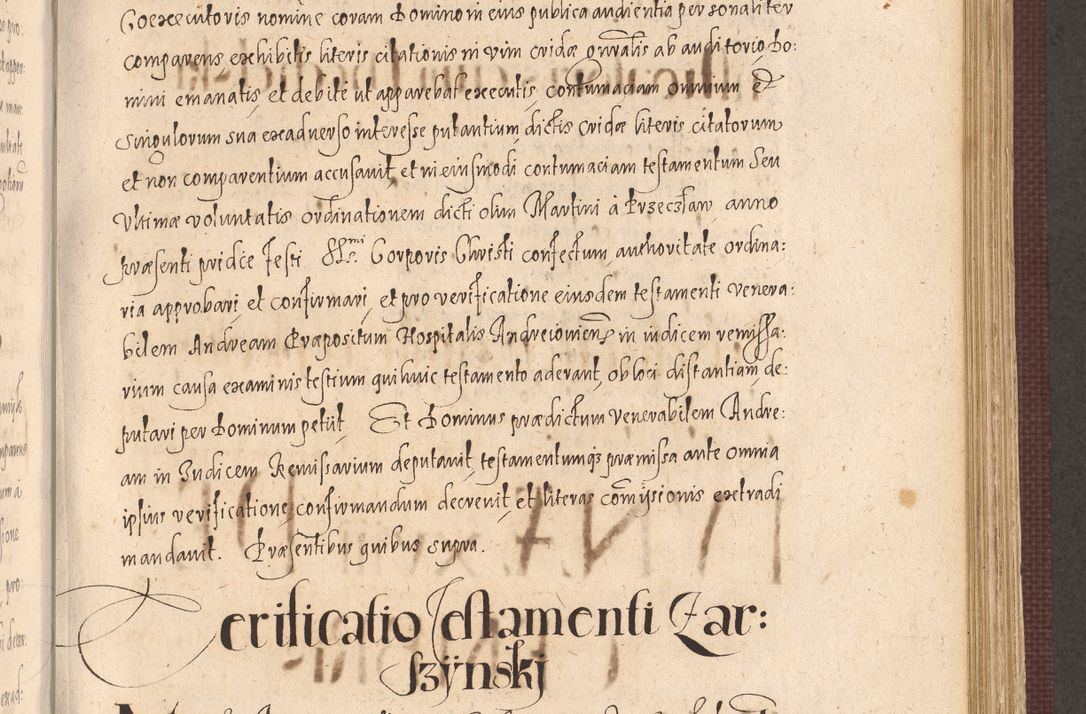 Coexecutoris nomine coram Domino in eius publica audientia personaliter
comparens exhibitis literis citationis in vim cridæ onralis ab auditorio Do:
mini emanatis, et debite ut apparebat executis, contumaciam omnium et
singulorum sua exaduerso interesse putantium, dictis cridæ literis citatorum
et non comparentium accusauit, et in eiusmodi contumaciam testamentum seu
Vltimæ voluntatis ordinationem dicti olim Martini à Przeczław anno
præsenti pridie festi SSmi Corporis Christi confectum, authoritate ordina:
ria approbari, et confirmari, et pro verificatione eiusdem testamenti venera:
bilem Andream Præpositum Hospitalis Andreiouiens in iudicem remissa:
rium causa examinis testium qui huic testamento aderant, ob loci distantiam, de:
putari per Dominum petiit. Et Dominus prædictum venerabilem Andre:
am in Iudicem Remissarium deputauit, testamentumqz præmissa ante omnia
ipsius verificatione, confirmandum decreuit, et literas comissionis extradi
mandauit. Præsentibus quibus supra.
Verificatio Testamenti Zar:
szÿnskj